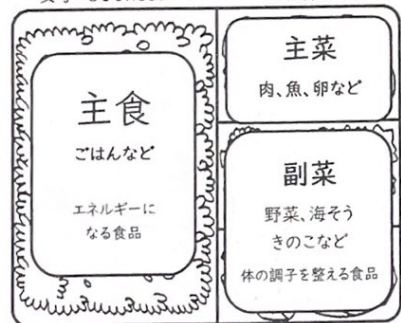 主食
ごはんなど
エネルギーに
なる食品
主菜
肉、魚、卵など
副菜
野菜、海そう
きのこなど
体の調子を整える食品